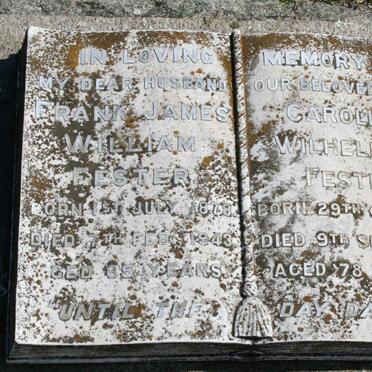 IN LOVING
MY DEAR HUSBAND
FRANK JAMES
WILLIAM
FESTER
BORN 1ST JULY 1878
DIED 7TH FEB. 1943
AGED 65 YEARS
"UNTIL THE
MEMORY
OUR BELOVE
CAROLI
WILHEL
FEST
BORN 29TH
DIED 9TH S
AGED 78
DAY DA